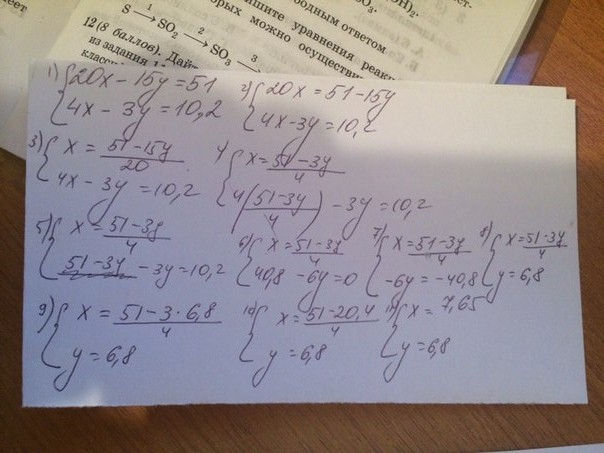 ободным ответом
ишите уравнения реак
S →1 SO₂ →2 SO₃ →3
орых можно осуществи
12 (8 баллов). Дайт
из задания 1
класс
1) {20x - 15y = 51
{4x - 3y = 10,2
2) {20x = 51 - 15y
{4x - 3y = 10,2
3) {x = (51 - 15y)/20
{4x - 3y = 10,2
4) {x = (51 - 3y)/4
{4((51 - 3y)/4) - 3y = 10,2
5) {x = (51 - 3y)/4
{51 - 3y - 3y = 10,2
6) {x = (51 - 3y)/4
{40,8 - 6y = 0
7) {x = (51 - 3y)/4
{-6y = -40,8
8) {x = (51 - 3y)/4
{y = 6,8
9) {x = (51 - 3·6,8)/4
{y = 6,8
10) {x = (51 - 20,4)/4
{y = 6,8
11) {x = 7,65
{y = 6,8